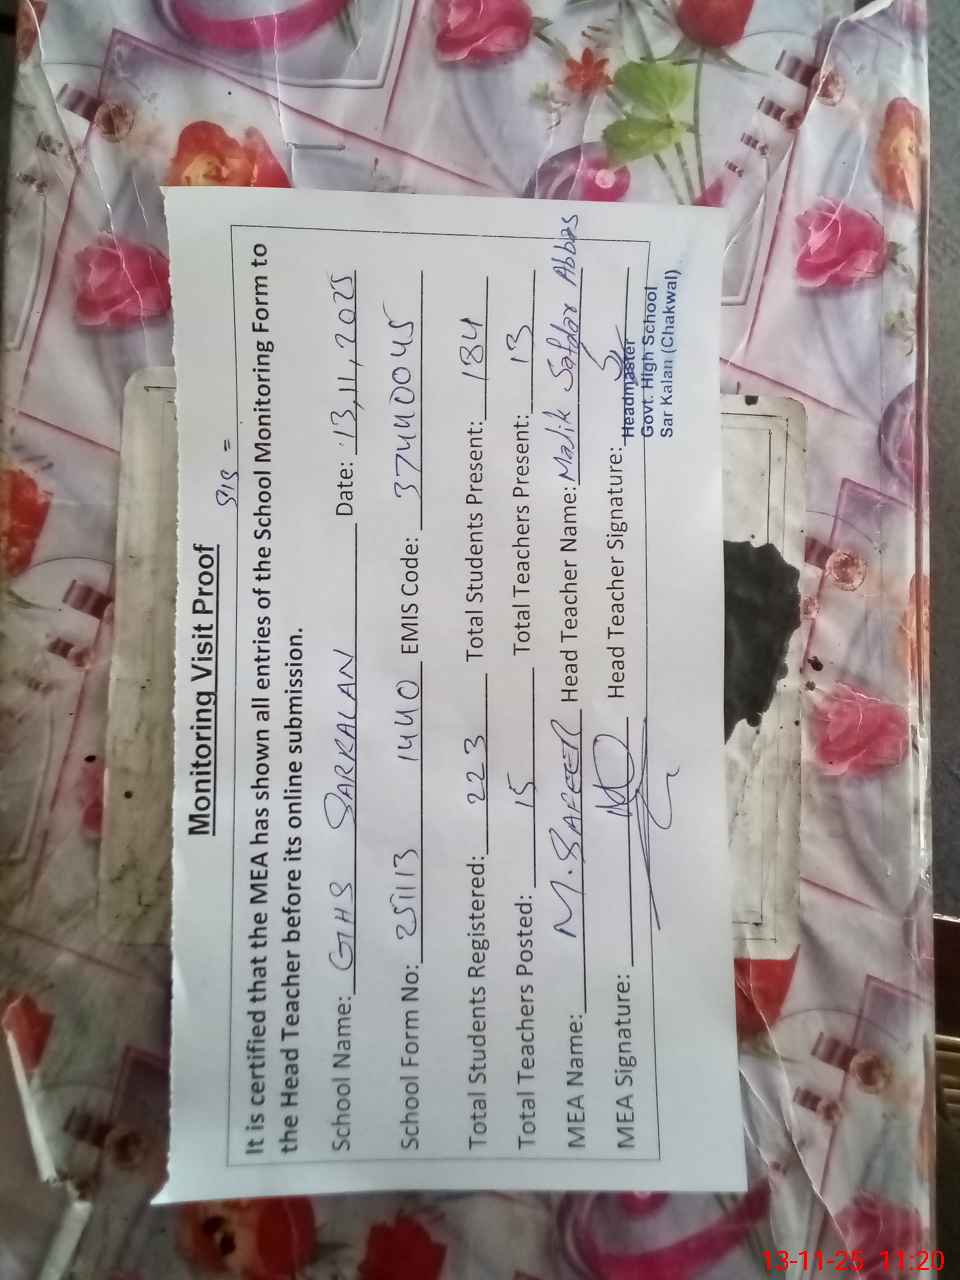 Monitoring Visit Proof
It is certified that the MEA has shown all entries of the School Monitoring Form to
the Head Teacher before its online submission.
School Name: GHS SARKALAN Date: 13,11,2025
School Form No: 251113 1440 EMIS Code: 37440045
Total Students Registered: 223 Total Students Present: 184
Total Teachers Posted: 15 Total Teachers Present: 13
MEA Name: M. SAFEER Head Teacher Name: Malik Safdar Abbas
MEA Signature: Head Teacher Signature:
Headmaster
Govt. High School
Sar Kalan (Chakwal)
13-11-25 11:20